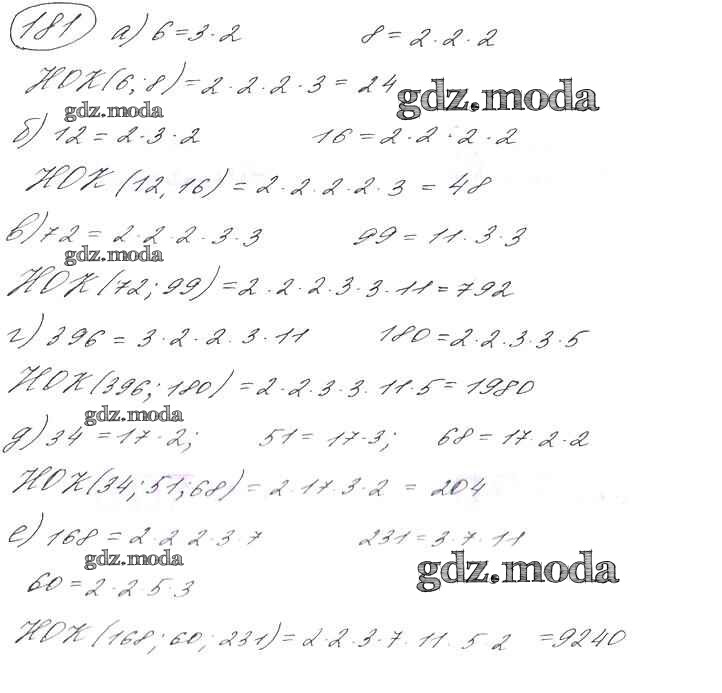 181 а) 6=3·2 8=2·2·2
НОК(6;8)=2·2·2·3=24
gdz.moda
gdz.moda
б) 12=2·3·2 16=2·2·2·2
НОК(12,16)=2·2·2·2·3=48
в) 72=2·2·2·3·3 99=11·3·3
gdz.moda
НОК(72;99)=2·2·2·3·3·11=792
г) 396=3·2·2·3·11 180=2·2·3·3·5
НОК(396;180)=2·2·3·3·11·5=1980
gdz.moda
д) 34=17·2; 51=17·3; 68=17·2·2
НОК(34;51;68)=2·17·3·2=204
е) 168=2·2·2·3·7 231=3·7·11
gdz.moda
gdz.moda
60=2·2·5·3
НОК(168;60;231)=2·2·3·7·11·5·2=9240